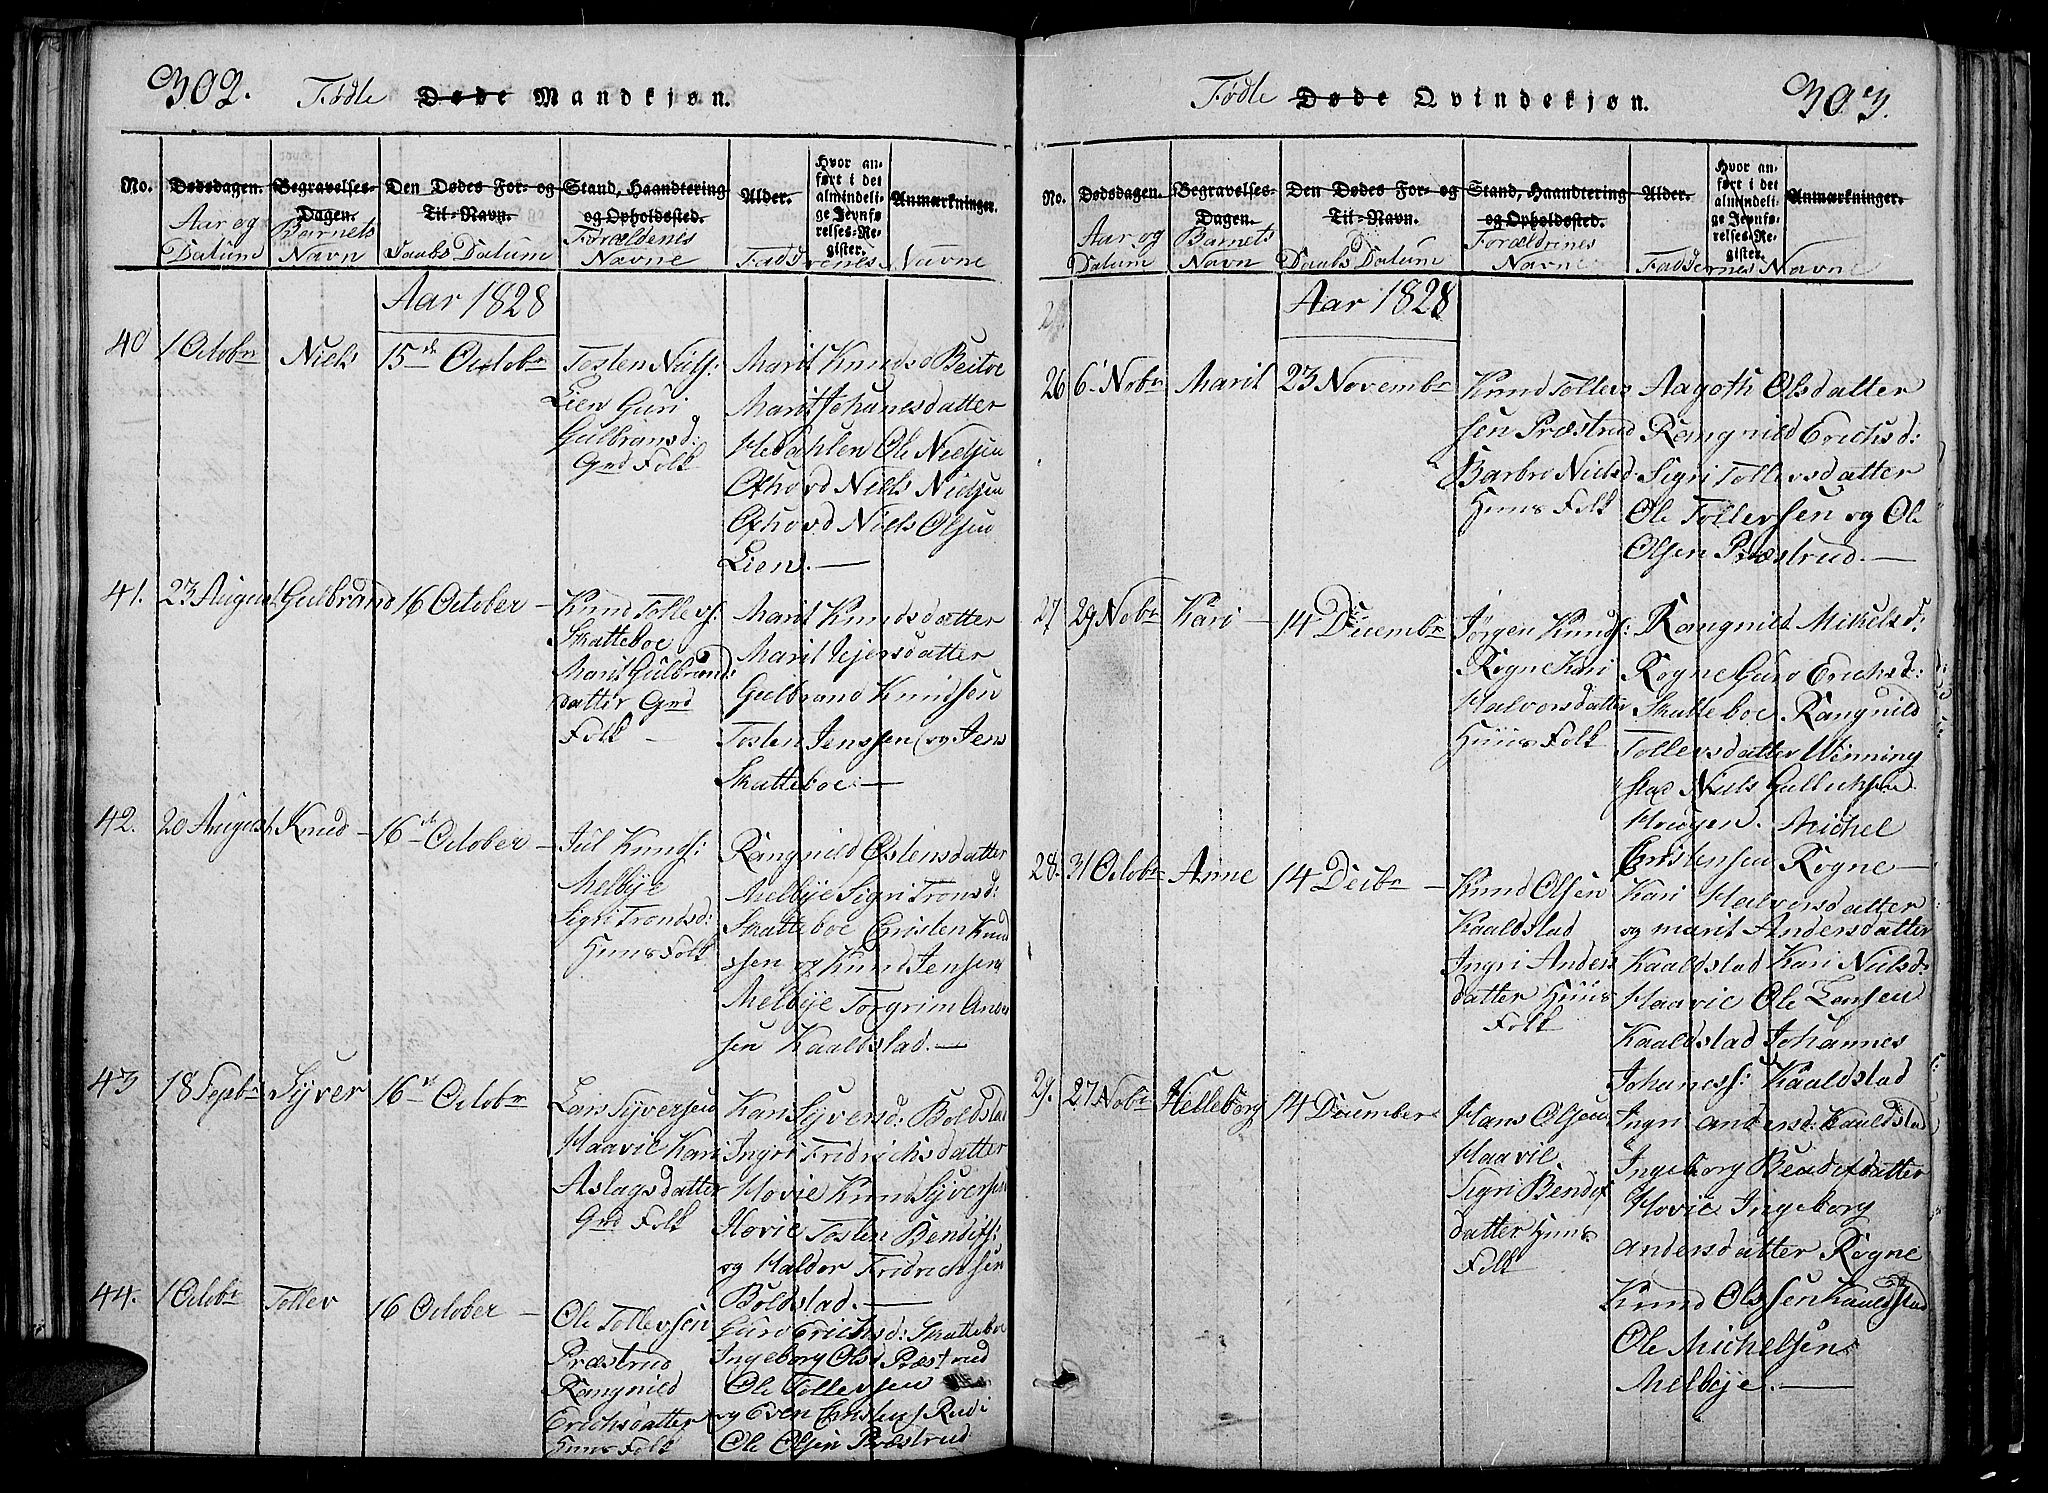 302.
Fødte Døde Mandkjøn.
No.
Dødsdagen.
Begravelses-
Dagen.
Den Dødes For- og
Til-Navn.
Stand, Haandtering
og Opholdssted.
Alder.
Hvor an-
ført i det
almindeli-
ge Jevnfø-
relses-Re-
gister.
Anmærkninger.
Aar og
Datum
Barnets
Navn
Daabs Datum
Forældenes
Navne
Faddrenes Navne
Aar 1828
40 1 Octobr Niels 15de Octobr
Tosten Niels:
Lien Guri
Gulbransd:
Grd Folk
Marit Knudsd Beitoe
Marit Johanesdatter
Hedahlen Ole Nielsen
Niels Nielsen
Niels Olsen
Lien. —
41. 23 August Gulbrand 16 October —
Knud Tollevs:
Skatteboe
Marit Gulbrands
datter Grd
Folk —
Marit Knudsdatter
Marit Ejersdatter
Gulbrand Knudsen
Tosten Jenssen og Jens
Skatteboe —
42. 20 August Knud — 16de October —
Jul Knuds:
Melbye
Sigri Trondsd:
Huus Folk
Rangnild Østensdatter
Melbye Sigri Tronsd:
Skatteboe Cristen Knud
ssen og Knud Jensen
Melbye Torgrim Ander
sen Kaaldstad. —
43 18 Sepbr Syver 16de Octobr
Lars Syversen
Haavie Kari
Aslagsdatter
Grd Folk
Kari Syversd: Boldstad
Ingri Fridrichsdatter
Hovie Knud Syversen
Hovie Tosten Bendix:
og Haldor Fridrichsen
Boldstad. —
44. 1 Octobr Toller 16 October —
Ole Tollevsen
Præstrud
Rangnild
Erichsdatter
Huus Folk
Guro Erichsd: Skatteboe
Ingeborg Olsd Præstrud
Ole Tollevsen
og Even Cristens Rudi
Ole Olsen Præstrud
303.
Fødte Døde Qvindekjøn.
No.
Dødsdagen.
Begravelses-
Dagen.
Den Dødes For- og
Til-Navn.
Stand, Haandtering
og Opholdssted.
Alder.
Hvor an-
ført i det
almindeli-
ge Jevnfø-
relses-Re-
gister.
Anmærkninger.
Aar og
Datum
Barnets
Navn
Daabs Datum
Forældrines
Navne
Faddernes Navne
Aar 1828
26 6 Nobr Marit 23 Novembr
Knud Tollers
sen Præstrud
Barbro Nielsd
Huus Folk
Aagoth Olsdatter
Rangnild Erichsd:
Sigri Tollevsdatter
Ole Tollevsen og Ole
Olsen Præstrud. —
27 29 Nobr Kari — 14 Decembr
Jørgen Knuds:
Rogne Kari
Halvorsdatter
Huus Folk
Rangnild Mikelsd:
Rogne Guro Erichsd:
Skatteboe Rangnild
Tollevsdatter Winning
stad Niels Gullichsen
Houøen. Michel
Cristensen Rogne —
28. 31 Octobr Anne 14 Decbr —
Knud Olsen
Kaaldstad
Ingri Anders
datter Huus
Folk
Kari Halvorsdatter
og marit Andersdatter
Kaaldstad Kari Nielsd:
Haavie Ole Larsen
Kaaldstad Johannes
Johaness: Kaaldstad
29. 27 Nobr Helleborg 14 December
Hans Olsen
Haavie
Sigri Bendix
datter Huus
Folk
Ingri andersd: Kauldstad
Ingeborg Bendixdatter
Hovie Ingeborg
andersdatter Rogne
Knud Olssen Kauldstad
Ole Michelsen
Melbye. —